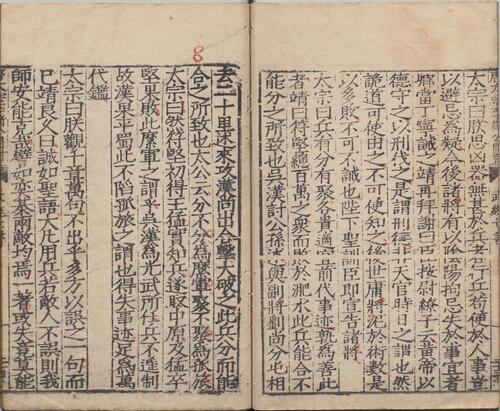 太宗曰朕思凶器無甚於兵者行兵苟便於人事豈
以避忌爲疑今後諸將有以陰陽拘忌失於事宜者
卿當丁寧誡之靖再拜謝曰臣按尉繚子云黃帝以
德守之以刑伐之是謂刑德非天官時日之謂也然
詭道可使由之不可使知之後世庸將泥於術數是
以多敗不可不誡也陛下聖訓臣即宣告諸將
太宗曰兵有分有聚各貴適宜前代事迹孰爲善此
者靖曰苻堅總百萬之衆而敗於淝水此兵能合不
能分之所致也吳漢討公孫述與副將劉尚分屯相
去二十里述來攻漢尚出合擊大破之此兵分而能
合之所致也太公云分不分爲縻軍聚不聚爲孤旅
太宗曰然苻堅初得王猛實知兵遂取中原及猛卒
堅果敗此縻軍之謂乎吳漢爲光武所任兵不遙制
故漢果平蜀此不陷孤旅之謂也得失事迹足爲萬
代鑑
太宗曰朕觀千章萬句不出乎多方以誤之一句而
已靖良久曰誠如聖語大凡用兵若敵人不誤則我
師安能克哉譬如奕棊兩敵均焉一著或失竟莫能
8